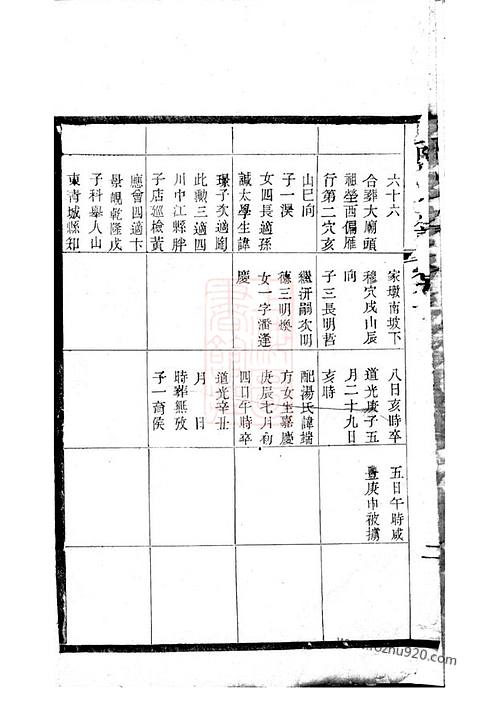 六十六
合葬大廟頭
祖塋西偏雁
行第二穴亥
山巳向
子一淏
女四長適孫
誠太學生諱
璟子次適陶
此勲三適四
川中江縣胖
子店巡檢黃
應曾四適卞
景峴乾隆戊
子科舉人山
東青城縣知
家墩南坡下
穆穴戌山辰
向
子三長明哲
繼洴嗣次明
德三明煥
女一字潘逢
慶
八日亥時卒
道光庚子五
月二十九日
亥時
配湯氏諱端
方女生嘉慶
庚辰七月初
四日午時卒
道光辛丑
月 日
時葬無攷
子一育侯
五日午時咸
豐庚申被擄
二
www.1ozhu920.com